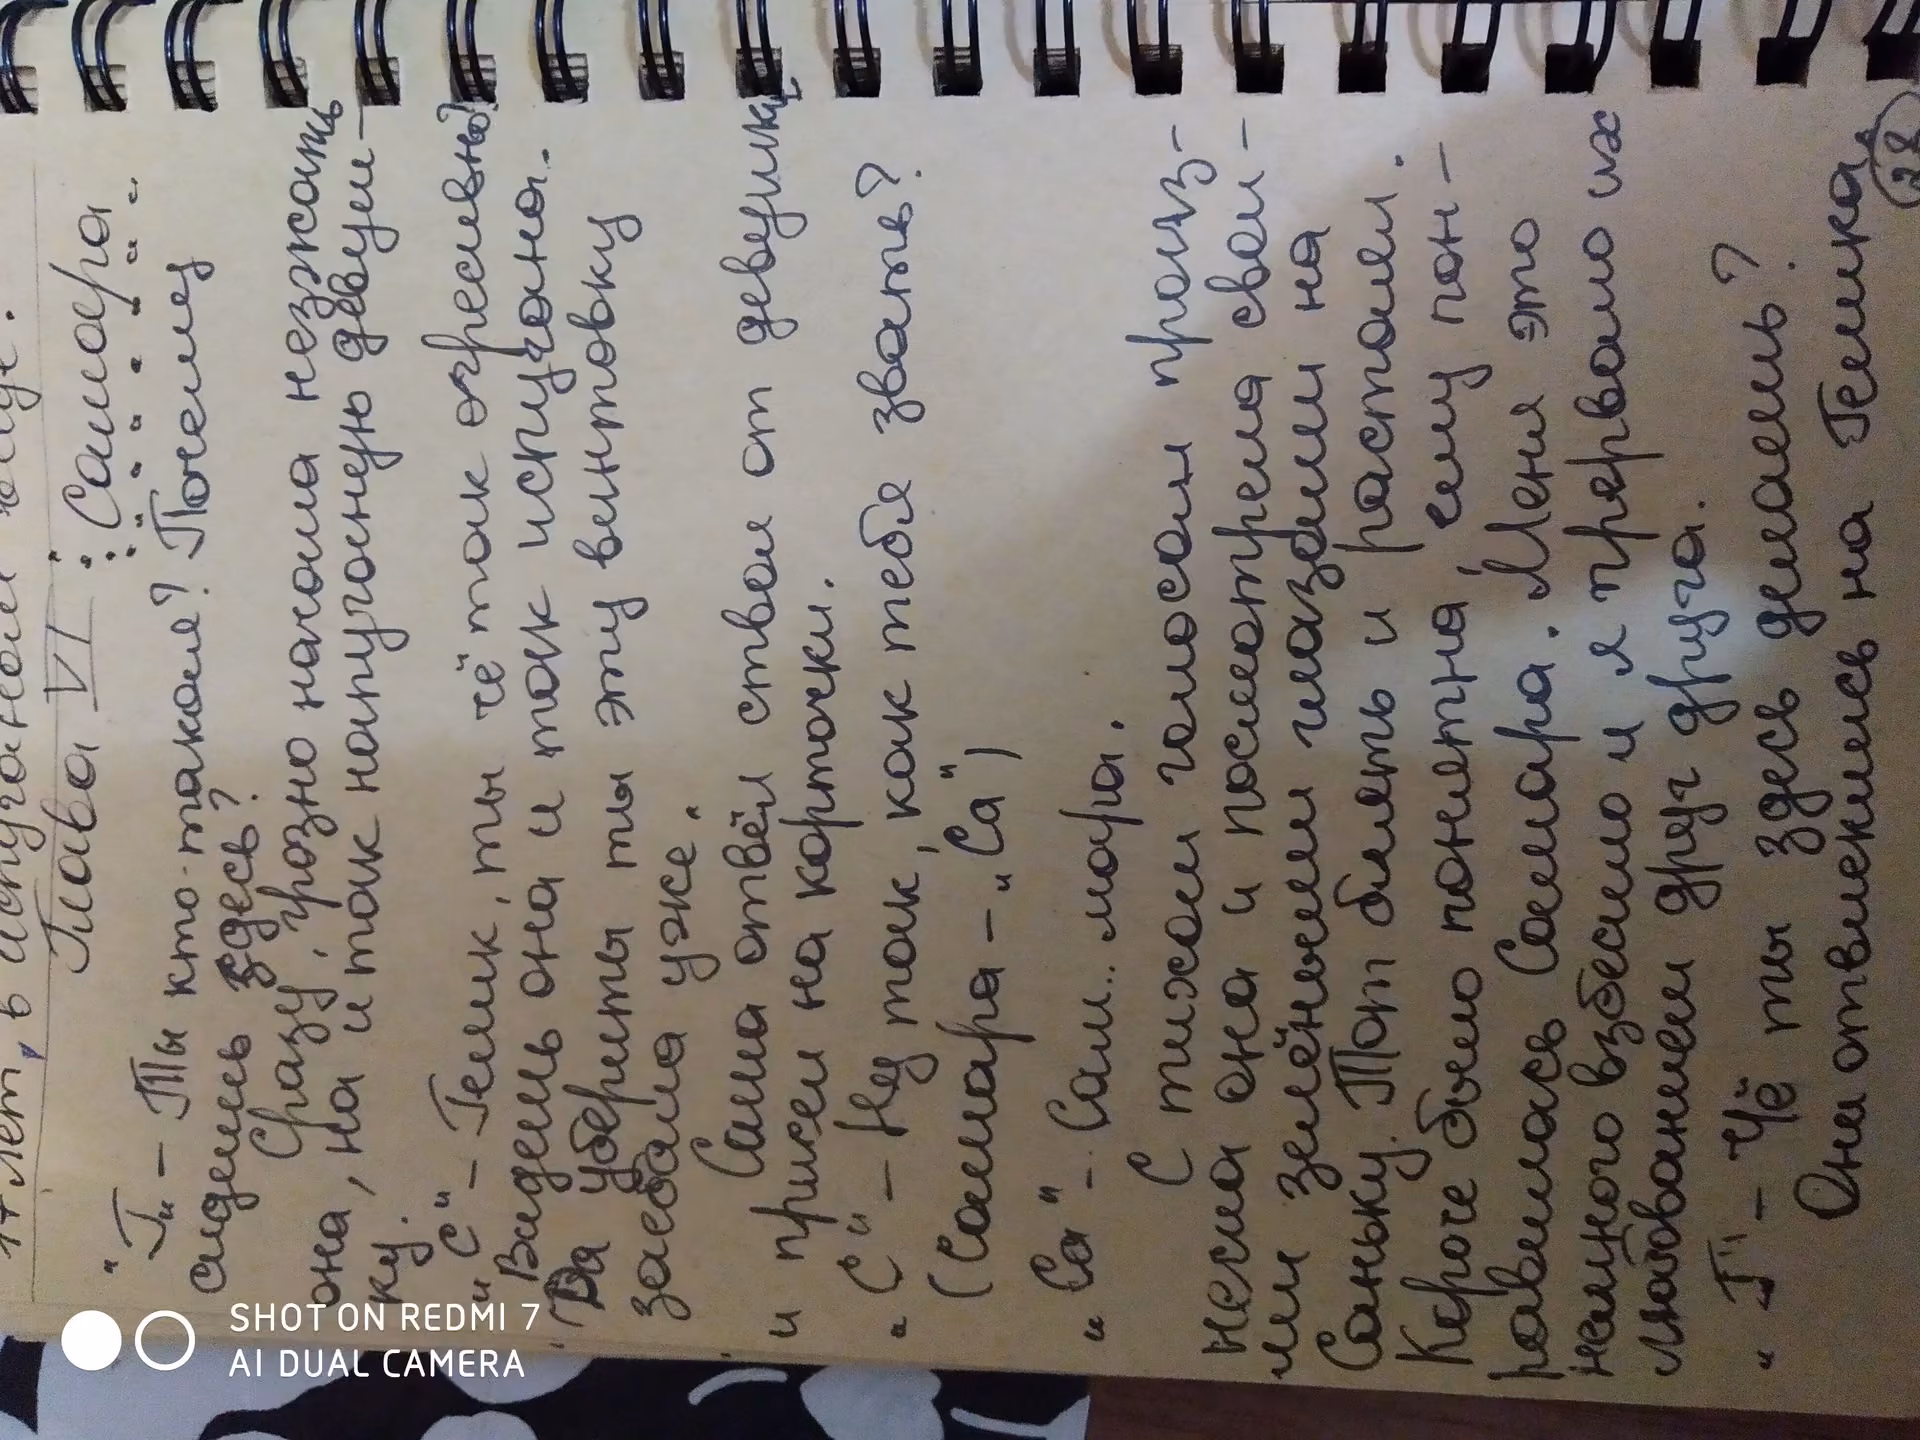 лет, в испуганом
Глава VI : Самара.
"Г" – Ты кто-такая? Почему
сидешь здесь?
Сразу, грозно начала незжать
она, на и так напуганую девуш–
ку.
"С" – Гелик, ты чё так агресивно?
Видешь она и так испугана.
Да уберить ты эту винтовку
заебала уже.
Сама отвёл ствол от девушки
и присел на корточки.
"С" – Ну так, как тебя звать?
(Самара – "Са")
"Са" – Сам.. мара.
С тихом голосом произ–
несла она и посмотрела свои–
ми зелёными глазами на
Саньку. Тот блять и растоял.
Кароче было понятно, ему пон–
равилась Самара. Меня это
немного взбесило и я прервало их
любованем друг друга.
"Г" – Чё ты здесь делаешь?
Она отвлеклись на Гелика.
28
SHOT ON REDMI 7
AI DUAL CAMERA